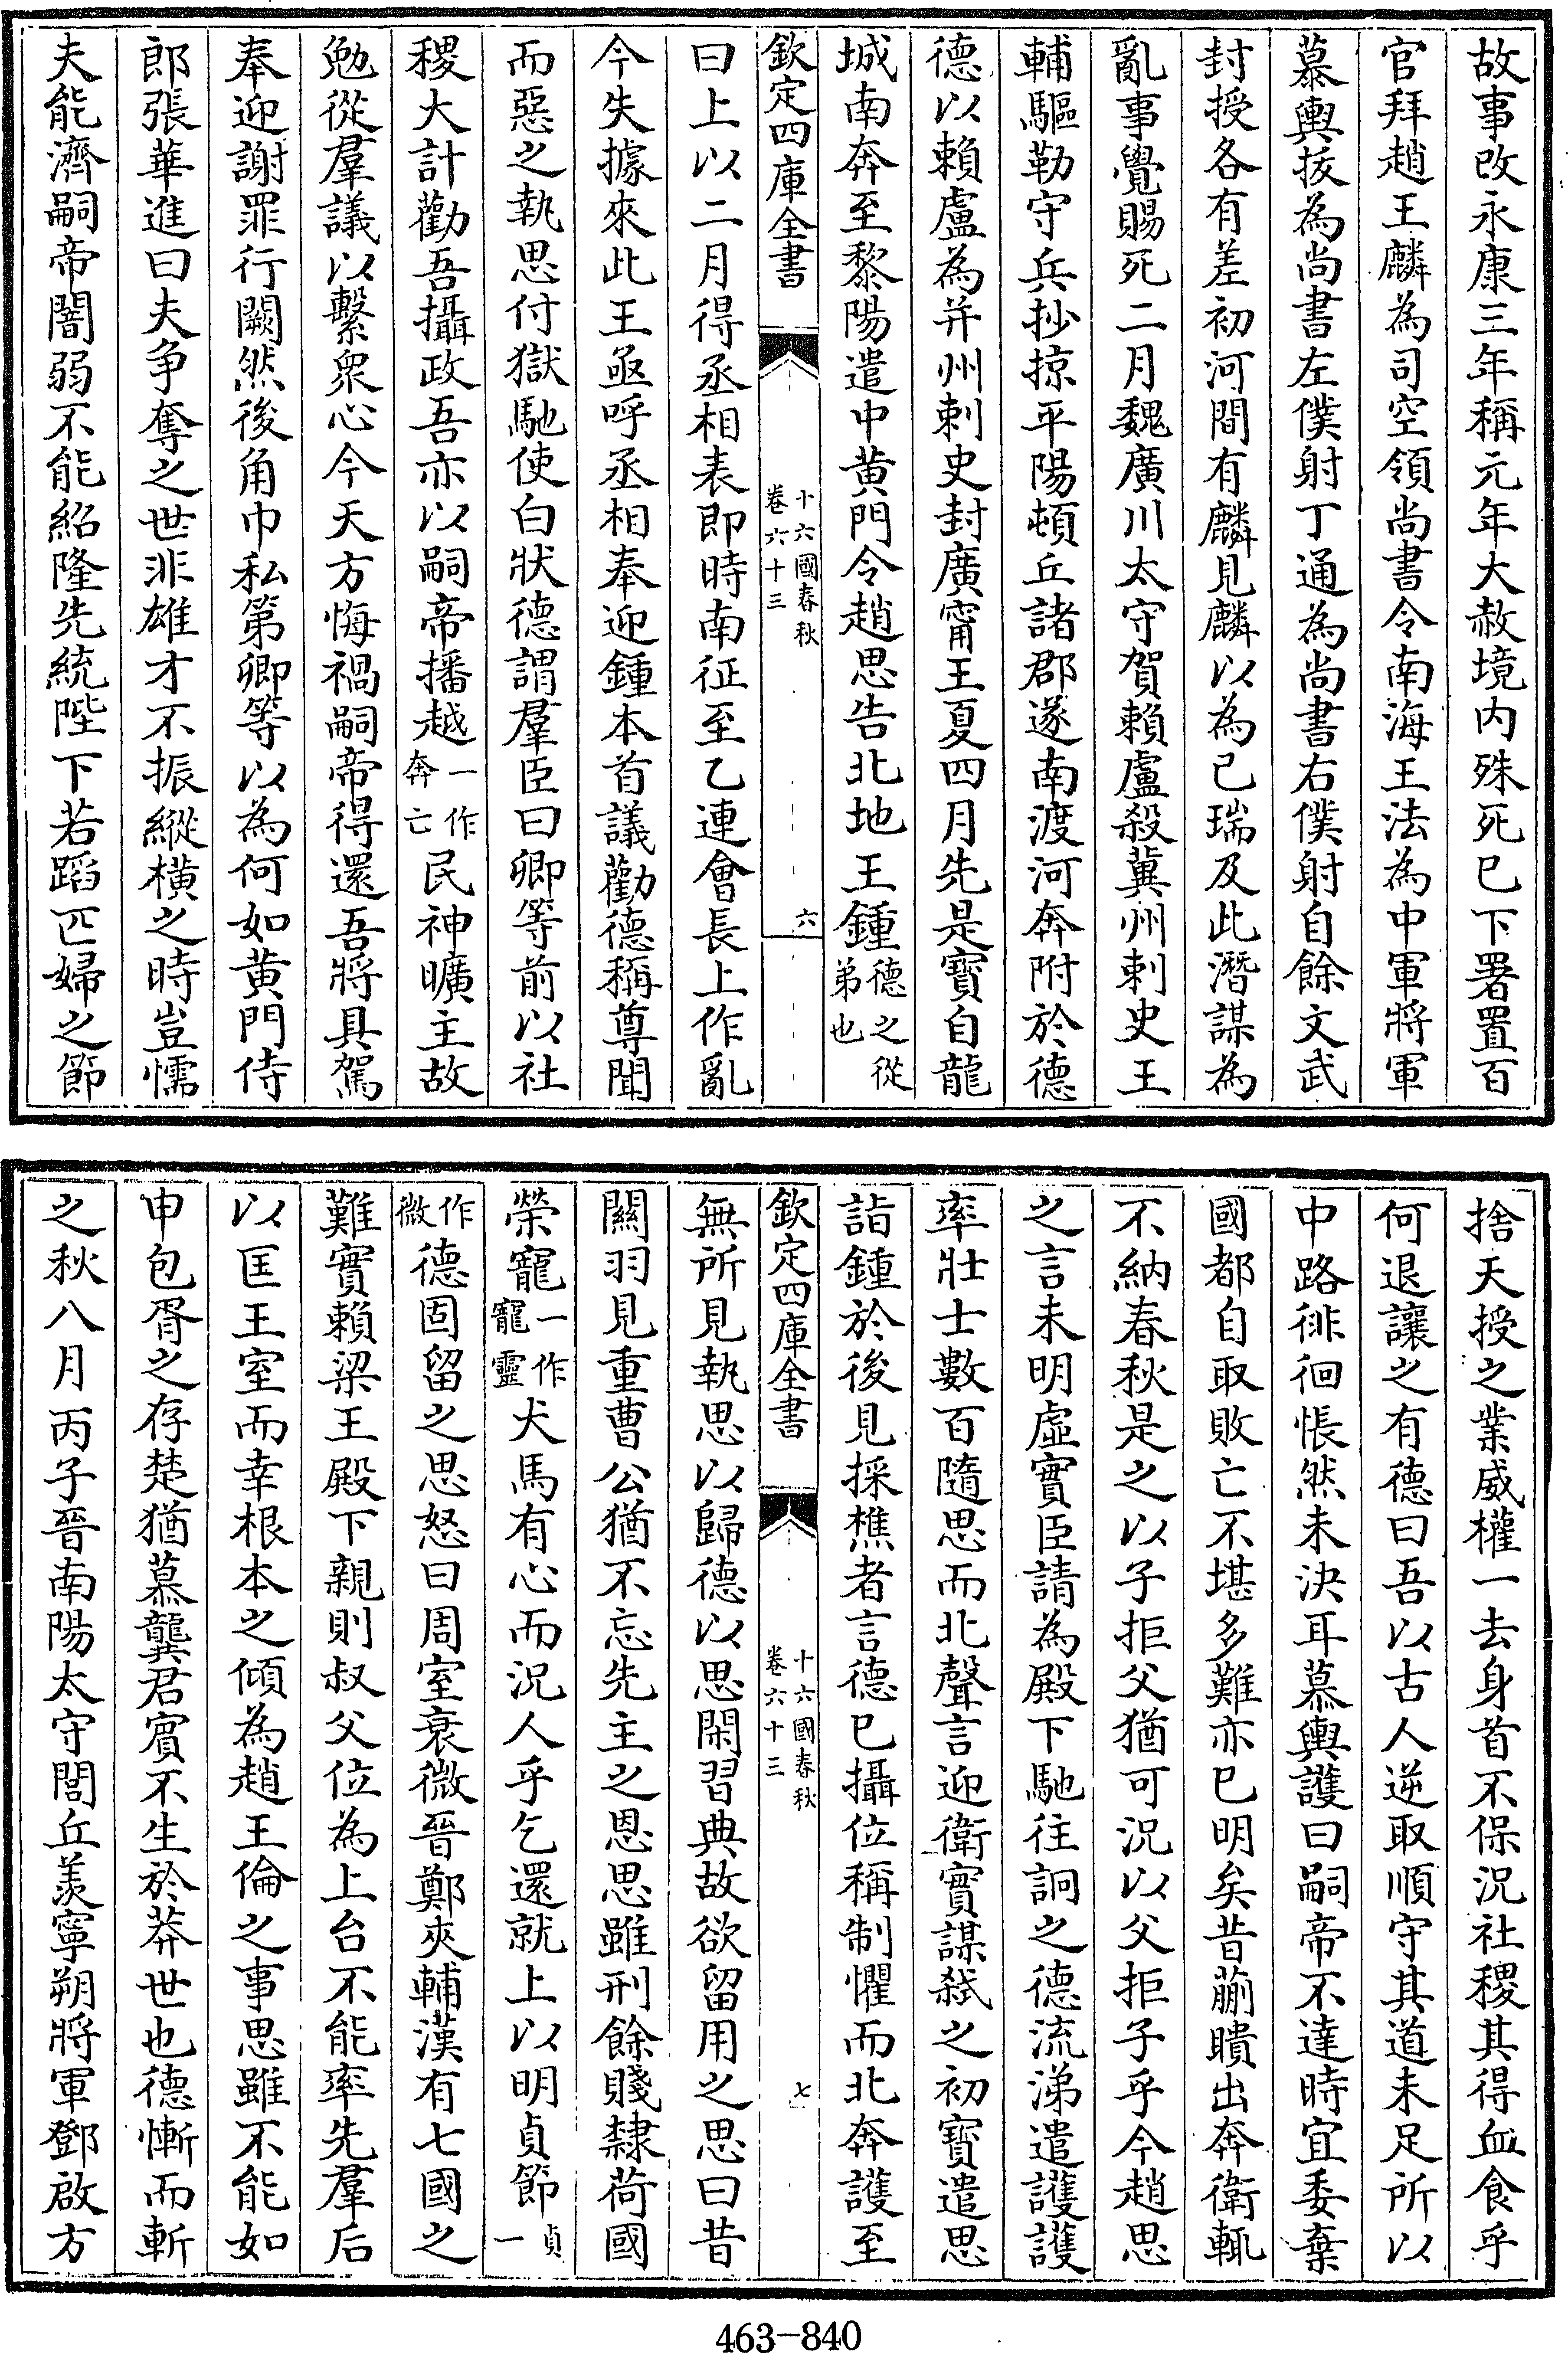 故事改永康三年稱元年大赦境内殊死已下署置百
官拜趙王麟為司空領尚書令南海王法為中軍將軍
慕輿拔為尚書左僕射丁通為尚書右僕射自餘文武
封授各有差初河間有麟見麟以為己瑞及此潛謀為
亂事覺賜死二月魏廣川太守賀賴盧殺冀州刺史王
輔驅勒守兵抄掠平陽頓丘諸郡遂南渡河奔附於德
德以賴盧為并州刺史封廣甯王夏四月先是寶自龍
城南奔至黎陽遣中黄門令趙思告北地王鍾德之從弟也
欽定四庫全書
十六國春秋
卷六十三
六
曰上以二月得丞相表即時南征至乙連會長上作亂
今失據來此王亟呼丞相奉迎鍾本首議勸德稱尊聞
而惡之執思付獄馳使白狀德謂羣臣曰卿等前以社
稷大計勸吾攝政吾亦以嗣帝播越一作奔亡民神曠主故
勉從羣議以繫衆心今天方悔禍嗣帝得還吾將具駕
奉迎謝罪行闕然後角巾私第卿等以為何如黄門侍
郎張華進曰夫争奪之世非雄才不振縱横之時豈懦
夫能濟嗣帝闇弱不能紹隆先統陛下若蹈匹婦之節
捨天授之業威權一去身首不保況社稷其得血食乎
何退讓之有德曰吾以古人逆取順守其道未足所以
中路徘徊悵然未決耳慕輿護曰嗣帝不達時宜委棄
國都自取敗亡不堪多難亦已明矣昔蒯瞶出奔衛輒
不納春秋是之以子拒父猶可況以父拒子乎今趙思
之言未明虛實臣請為殿下馳往詗之德流涕遣護護
率壯士數百隨思而北聲言迎衛實謀弑之初寶遣思
詣鍾於後見採樵者言德已攝位稱制懼而北奔護至
欽定四庫全書
十六國春秋
卷六十三
七
無所見執思以歸德以思閑習典故欲留用之思曰昔
關羽見重曹公猶不忘先主之恩思雖刑餘賤隸荷國
榮寵一作寵靈犬馬有心而況人乎乞還就上以明貞節貞一
作微德固留之思怒曰周室衰微晉鄭夾輔漢有七國之
難實賴梁王殿下親則叔父位為上台不能率先羣后
以匡王室而幸根本之傾為趙王倫之事思雖不能如
申包胥之存楚猶慕龔君賓不生於莽世也德慚而斬
之秋八月丙子晉南陽太守閭丘羨寧朔將軍鄧啟方
463-840